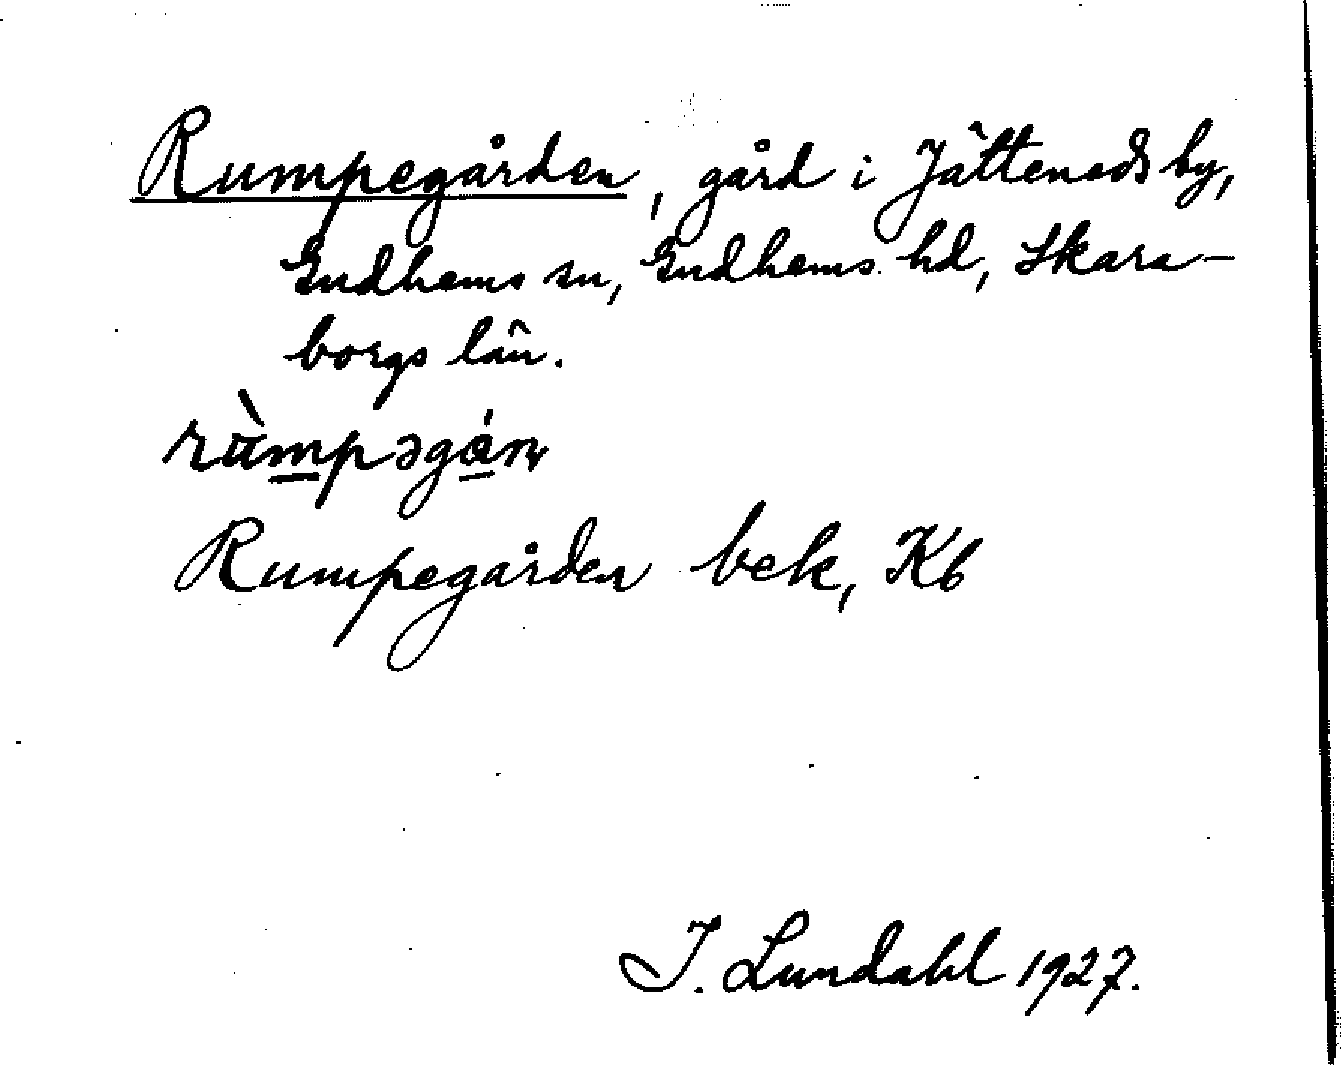 Rumpegården, gård i Jättenods by,
Gudhems sn, Gudhems hd, Skara-
borgs län.
rùmpəgán
Rumpegården bek, Kb
I. Lundahl 1927.